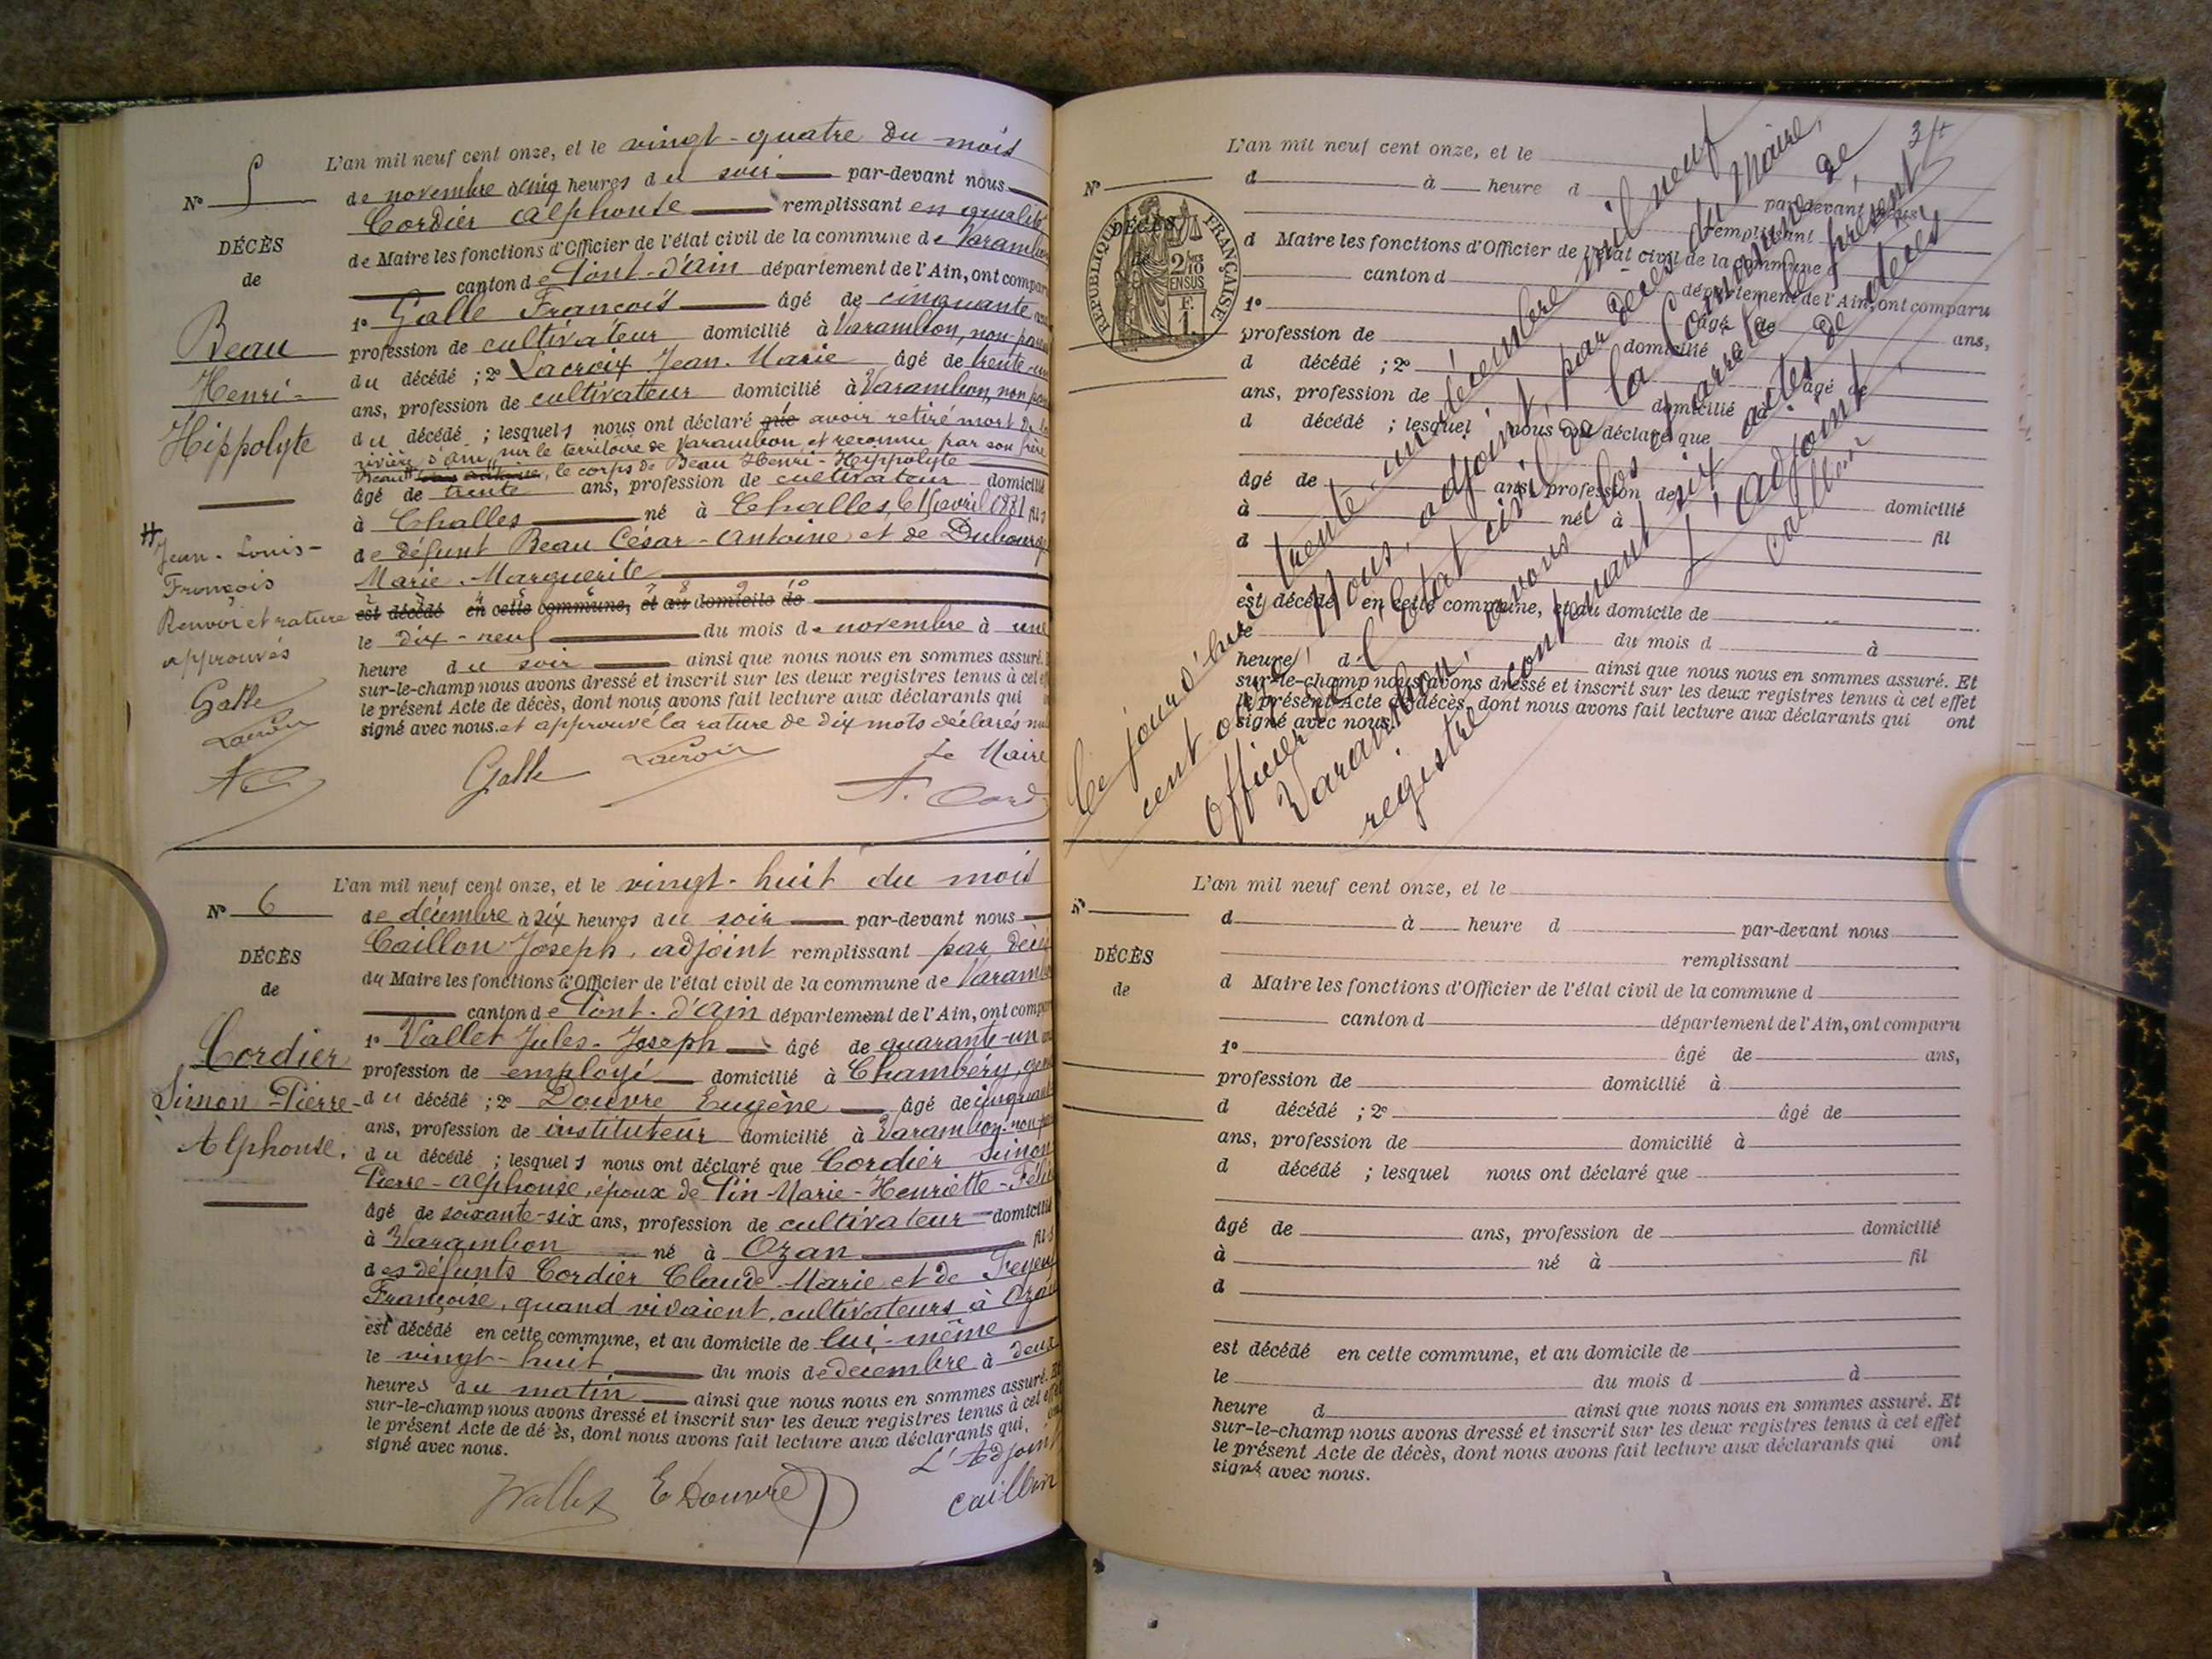 L'an mil neuf cent onze, et le vingt-quatre du mois
de novembre à cinq heures du soir par-devant nous
Cordier Alphonse remplissant en qualité
de Maire les fonctions d'Officier de l'état civil de la commune de
canton de Pont-d'Ain département de l'Ain, ont
1° Galle François âgé de cinquante
profession de cultivateur domicilié à Varambon, non
du décédé ; 2° Lacroix Jean-Marie âgé de trente
ans, profession de cultivateur domicilié à Varambon, non
du décédé ; lesquels nous ont déclaré que avoir retiré mort de la
rivière d'Ain, sur le territoire de Varambon et reconnu par son frère
Beau, le corps de Beau Henri-Hippolyte
âgé de trente ans, profession de cultivateur domicilié
à Challes né à Challes, le avril 1881 fils
de défunt Beau César-Antoine et de
Marie-Marguerite
est décédé en cette commune, et au domicile de
le dix-neuf du mois de novembre à une
heure du soir ainsi que nous nous en sommes assuré.
sur-le-champ nous avons dressé et inscrit sur les deux registres tenus à cet
le présent Acte de décès, dont nous avons fait lecture aux déclarants qui
signé avec nous. et approuvé la rature de dix mots déclarés
Galle Lacroix Le Maire
A. Cord
N° 5
DÉCÈS
de
Beau
Henri-
Hippolyte
Jean-Louis-
François
Renvoi et rature
approuvés
Galle
Lacroix
AC
L'an mil neuf cent onze, et le vingt-huit du mois
de décembre à six heures du soir par-devant nous
Caillon Joseph, adjoint remplissant par décès
du Maire les fonctions d'Officier de l'état civil de la commune de
canton de Pont-d'Ain département de l'Ain, ont
1° Vallet Jules-Joseph âgé de quarante-un
profession de employé domicilié à Chambéry,
du décédé ; 2° Douvre Eugène âgé de cinquante
ans, profession de instituteur domicilié à Varambon, non
du décédé ; lesquels nous ont déclaré que Cordier Simon
Pierre-Alphonse, époux de Pin Marie-Henriette-
âgé de soixante-six ans, profession de cultivateur domicilié
à Varambon né à Ozan fils
des défunts Cordier Claude-Marie et de
Françoise, quand vivaient, cultivateurs à Ozan
est décédé en cette commune, et au domicile de lui-même
le vingt-huit du mois de décembre à deux
heures du matin ainsi que nous nous en sommes assuré. Et
sur-le-champ nous avons dressé et inscrit sur les deux registres tenus à cet effet
le présent Acte de décès, dont nous avons fait lecture aux déclarants qui, ont
signé avec nous.
L'Adjoint
Vallet E Douvre Caillon
N° 6
DÉCÈS
de
Cordier
Simon-Pierre-
Alphonse.
L'an mil neuf cent onze, et le
d à heure d par-devant nous
remplissant
d Maire les fonctions d'Officier de l'état civil de la commune d
canton d département de l'Ain, ont comparu
1° âgé de ans,
profession de domicilié
d décédé ; 2° âgé de
ans, profession de domicilié à
d décédé ; lesquel nous ont déclaré que
âgé de ans, profession de domicilié
à né à fil
d
est décédé en cette commune, et au domicile de
le du mois d à
heure d ainsi que nous nous en sommes assuré. Et
sur-le-champ nous avons dressé et inscrit sur les deux registres tenus à cet effet
le présent Acte de décès, dont nous avons fait lecture aux déclarants qui ont
signé avec nous.
N°
DÉCÈS
de
RÉPUBLIQUE FRANÇAISE
2/10
EN SUS
F.
1.
Ce jourd'hui trente-un décembre mil neuf
cent onze, Nous, adjoint, par décès du Maire,
Officier de l'état civil de la Commune de
Varambon, avons clos et arrêté le présent
registre contenant six actes de décès
L'adjoint
Caillon
L'an mil neuf cent onze, et le
d à heure d par-devant nous
remplissant
d Maire les fonctions d'Officier de l'état civil de la commune d
canton d département de l'Ain, ont comparu
1° âgé de ans,
profession de domicilié à
d décédé ; 2° âgé de
ans, profession de domicilié à
d décédé ; lesquel nous ont déclaré que
âgé de ans, profession de domicilié
à né à fil
d
est décédé en cette commune, et au domicile de
le du mois d à
heure d ainsi que nous nous en sommes assuré. Et
sur-le-champ nous avons dressé et inscrit sur les deux registres tenus à cet effet
le présent Acte de décès, dont nous avons fait lecture aux déclarants qui ont
signé avec nous.
N°
DÉCÈS
de